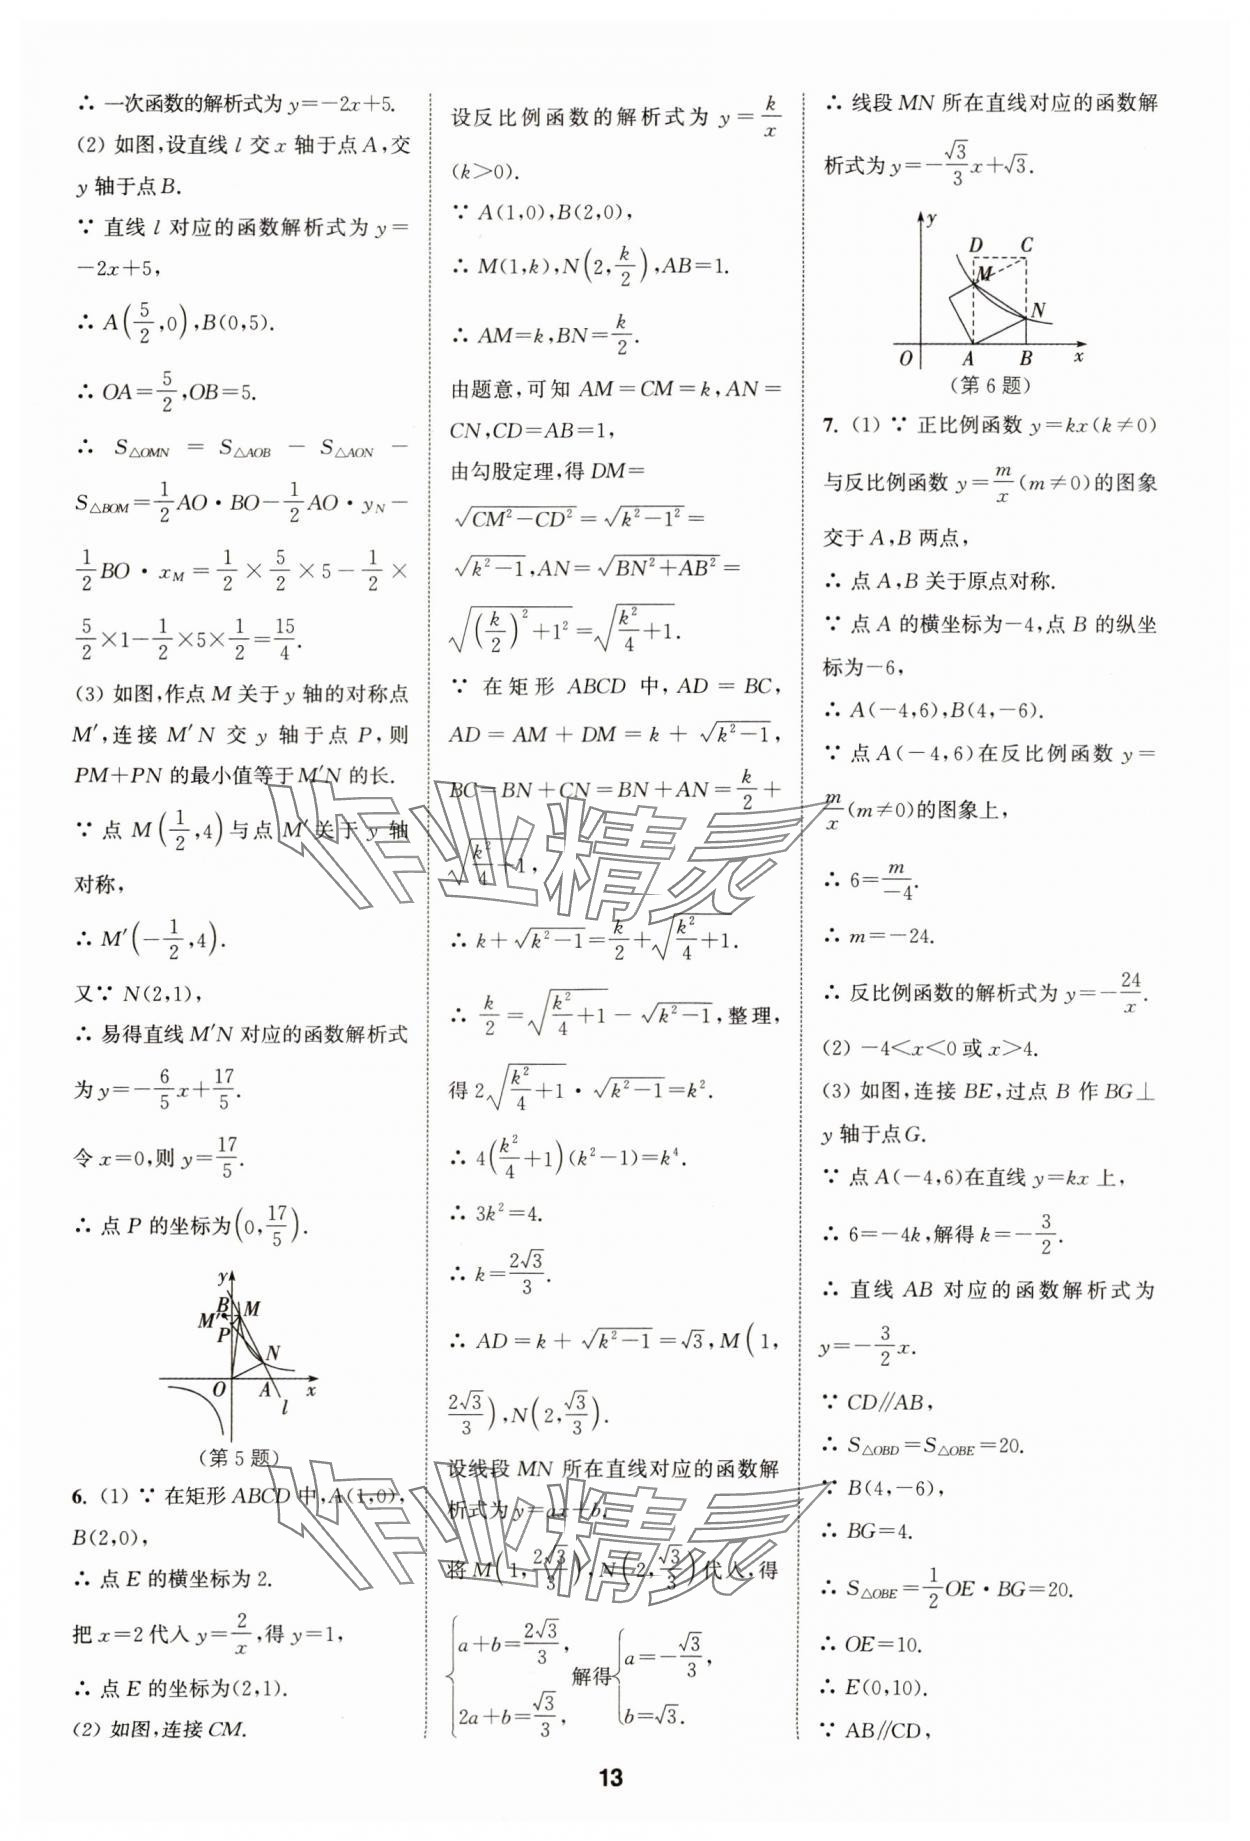 ∴ 一次函数的解析式为 y=-2x+5.
(2) 如图,设直线 l 交 x 轴于点 A,交
y 轴于点 B.
∵ 直线 l 对应的函数解析式为 y=
-2x+5,
∴ A(5/2,0),B(0,5).
∴ OA=5/2,OB=5.
∴ S△OMN = S△AOB - S△AON -
S△BOM=1/2AO·BO-1/2AO·yN-
1/2BO·xM=1/2×5/2×5-1/2×
5/2×1-1/2×5×1/2=15/4.
(3) 如图,作点 M 关于 y 轴的对称点
M′,连接 M′N 交 y 轴于点 P,则
PM+PN 的最小值等于 M′N 的长.
∵ 点 M(1/2,4)与点 M′关于 y 轴
对称,
∴ M′(-1/2,4).
又∵ N(2,1),
∴ 易得直线 M′N 对应的函数解析式
为 y=-6/5x+17/5.
令 x=0,则 y=17/5.
∴ 点 P 的坐标为(0,17/5).
y
B M
M′
P
N
O A x
l
(第 5 题)
6. (1) ∵ 在矩形 ABCD 中,A(1,0),
B(2,0),
∴ 点 E 的横坐标为 2.
把 x=2 代入 y=2/x,得 y=1,
∴ 点 E 的坐标为(2,1).
(2) 如图,连接 CM.
设反比例函数的解析式为 y=k/x
(k>0).
∵ A(1,0),B(2,0),
∴ M(1,k),N(2,k/2),AB=1.
∴ AM=k,BN=k/2.
由题意,可知 AM=CM=k,AN=
CN,CD=AB=1,
由勾股定理,得 DM=
√(CM²-CD²)=√(k²-1²)=
√(k²-1),AN=√(BN²+AB²)=
√((k/2)²+1²)=√(k²/4+1).
∵ 在矩形 ABCD 中,AD=BC,
AD=AM+DM=k+√(k²-1),
BC=BN+CN=BN+AN=k/2+
√(k²/4+1),
∴ k+√(k²-1)=k/2+√(k²/4+1).
∴ k/2=√(k²/4+1)-√(k²-1),整理,
得 2√(k²/4+1)·√(k²-1)=k².
∴ 4(k²/4+1)(k²-1)=k⁴.
∴ 3k²=4.
∴ k=2√3/3.
∴ AD=k+√(k²-1)=√3,M(1,
2√3/3),N(2,√3/3).
设线段 MN 所在直线对应的函数解
析式为 y=ax+b,
将 M(1,2√3/3),N(2,√3/3)代入,得
{a+b=2√3/3, 2a+b=√3/3, 解得{a=-√3/3, b=√3.
∴ 线段 MN 所在直线对应的函数解
析式为 y=-√3/3x+√3.
y
D C
M
N
O A B x
(第 6 题)
7. (1) ∵ 正比例函数 y=kx(k≠0)
与反比例函数 y=m/x(m≠0)的图象
交于 A,B 两点,
∴ 点 A,B 关于原点对称.
∵ 点 A 的横坐标为-4,点 B 的纵坐
标为-6,
∴ A(-4,6),B(4,-6).
∵ 点 A(-4,6)在反比例函数 y=
m/x(m≠0)的图象上,
∴ 6=m/-4.
∴ m=-24.
∴ 反比例函数的解析式为 y=-24/x.
(2) -4<x<0 或 x>4.
(3) 如图,连接 BE,过点 B 作 BG⊥
y 轴于点 G.
∵ 点 A(-4,6)在直线 y=kx 上,
∴ 6=-4k,解得 k=-3/2.
∴ 直线 AB 对应的函数解析式为
y=-3/2x.
∵ CD∥AB,
∴ S△OBD=S△OBE=20.
∵ B(4,-6),
∴ BG=4.
∴ S△OBE=1/2OE·BG=20.
∴ OE=10.
∴ E(0,10).
∵ AB∥CD,
作业精灵
作业精灵
13